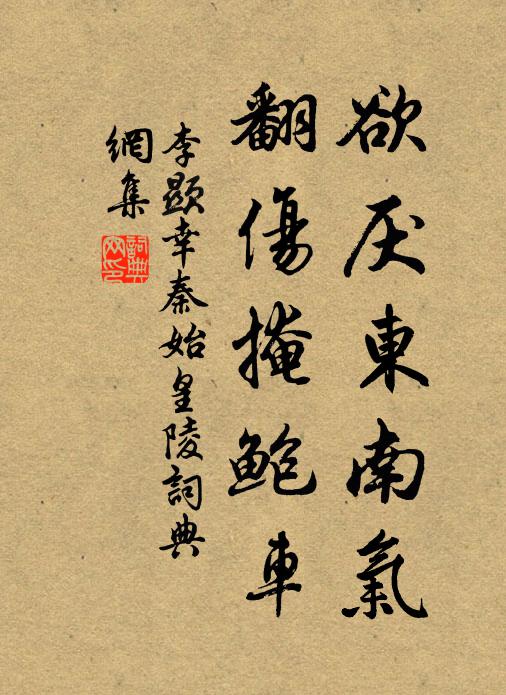 欲厌東南氣
翻傷掩鮑車
李顯幸秦始皇陵詞典
網集
詞典
网印